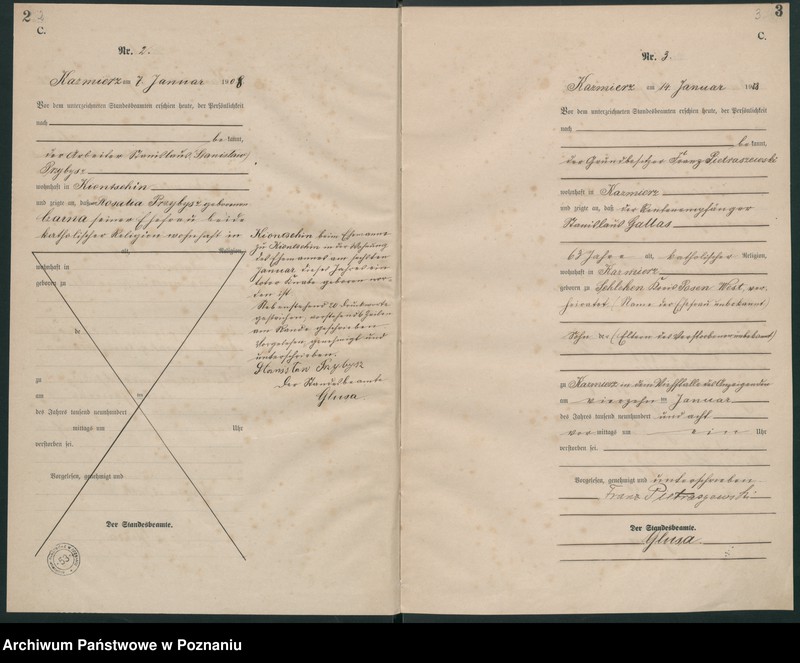 2
C.
Nr. 2.
Kazmierz am 7 Januar 1908
Vor dem unterzeichneten Standesbeamten erschien heute, der Persönlichkeit
nach
be kannt,
der Arbeiter Stanislaus (Stanislaw)
Przybysz
wohnhaft in Kiontschin
und zeigte an, daß Rosalia Przybysz geborene
seiner Ehefrau beide
katholischer Religion wohnhaft in
alt, Religion,
wohnhaft in
geboren zu
de
zu
am ten
des Jahres tausend neunhundert
mittags um Uhr
verstorben sei.
Vorgelesen, genehmigt und
Der Standesbeamte.
53
Kiontschin beim Ehemanne
zu Kiontschin in der Wohnung
des Ehemannes am sechsten
Januar dieses Jahres ein
toter Knabe geboren wor-
den ist
Nebenstehend 20 Druckworte
gestrichen,
am Rande geschrieben
Vorgelesen, genehmigt und
unterschrieben.
Stanisław Przybysz
Der Standesbeamte
Glusa.
3
C.
Nr. 3.
Kazmierz am 14. Januar 1908
Vor dem unterzeichneten Standesbeamten erschien heute, der Persönlichkeit
nach
be kannt,
der Grundbesitzer Franz Pietraszewski
wohnhaft in Kazmierz
und zeigte an, daß der Rentenempfänger
Stanislaus Gallas
Jahre alt, katholischer Religion,
wohnhaft in Kazmierz
geboren zu Schlehen Kreis Posen West, ver-
heiratet (Name der Ehefrau unbekannt)
Sohn der (Eltern des Verstorbenen unbekannt)
zu Kazmierz in dem des Anzeigenden
am vierzehn ten Januar
des Jahres tausend neunhundert und acht
vor mittags um ein Uhr
verstorben sei.
Vorgelesen, genehmigt und unterschrieben
Franz Pietraszewski
Der Standesbeamte.
Glusa.
Archiwum Państwowe w Poznaniu